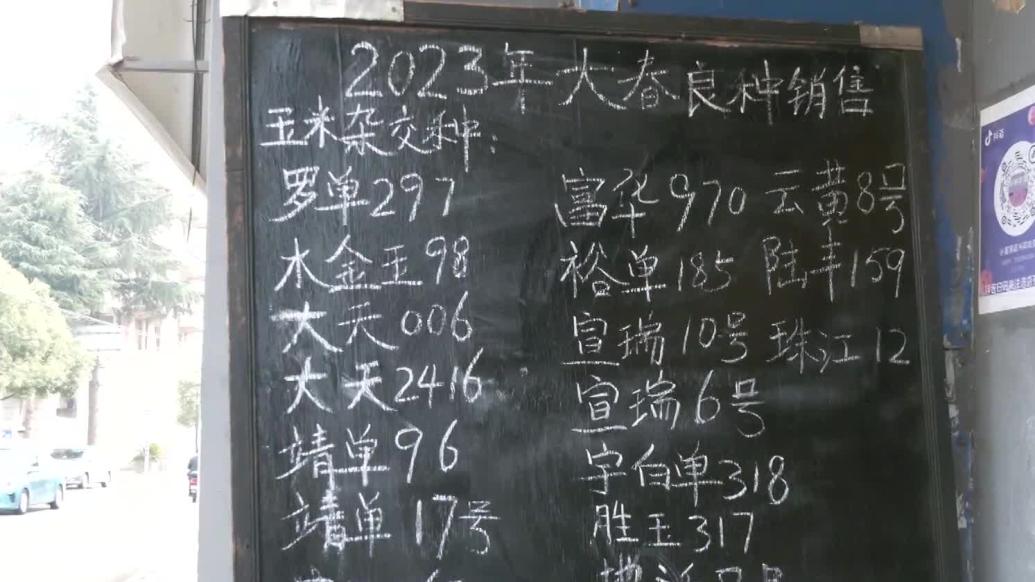 2023年大春良种销售
玉米杂交种:
罗单297 富华970 云黄8号
水金玉98 裕单185 陆丰159
大天006 宣瑞10号 珠江12
大天2416 宣瑞6号
靖单96 宇白单318
靖单17号 胜玉317
抖音